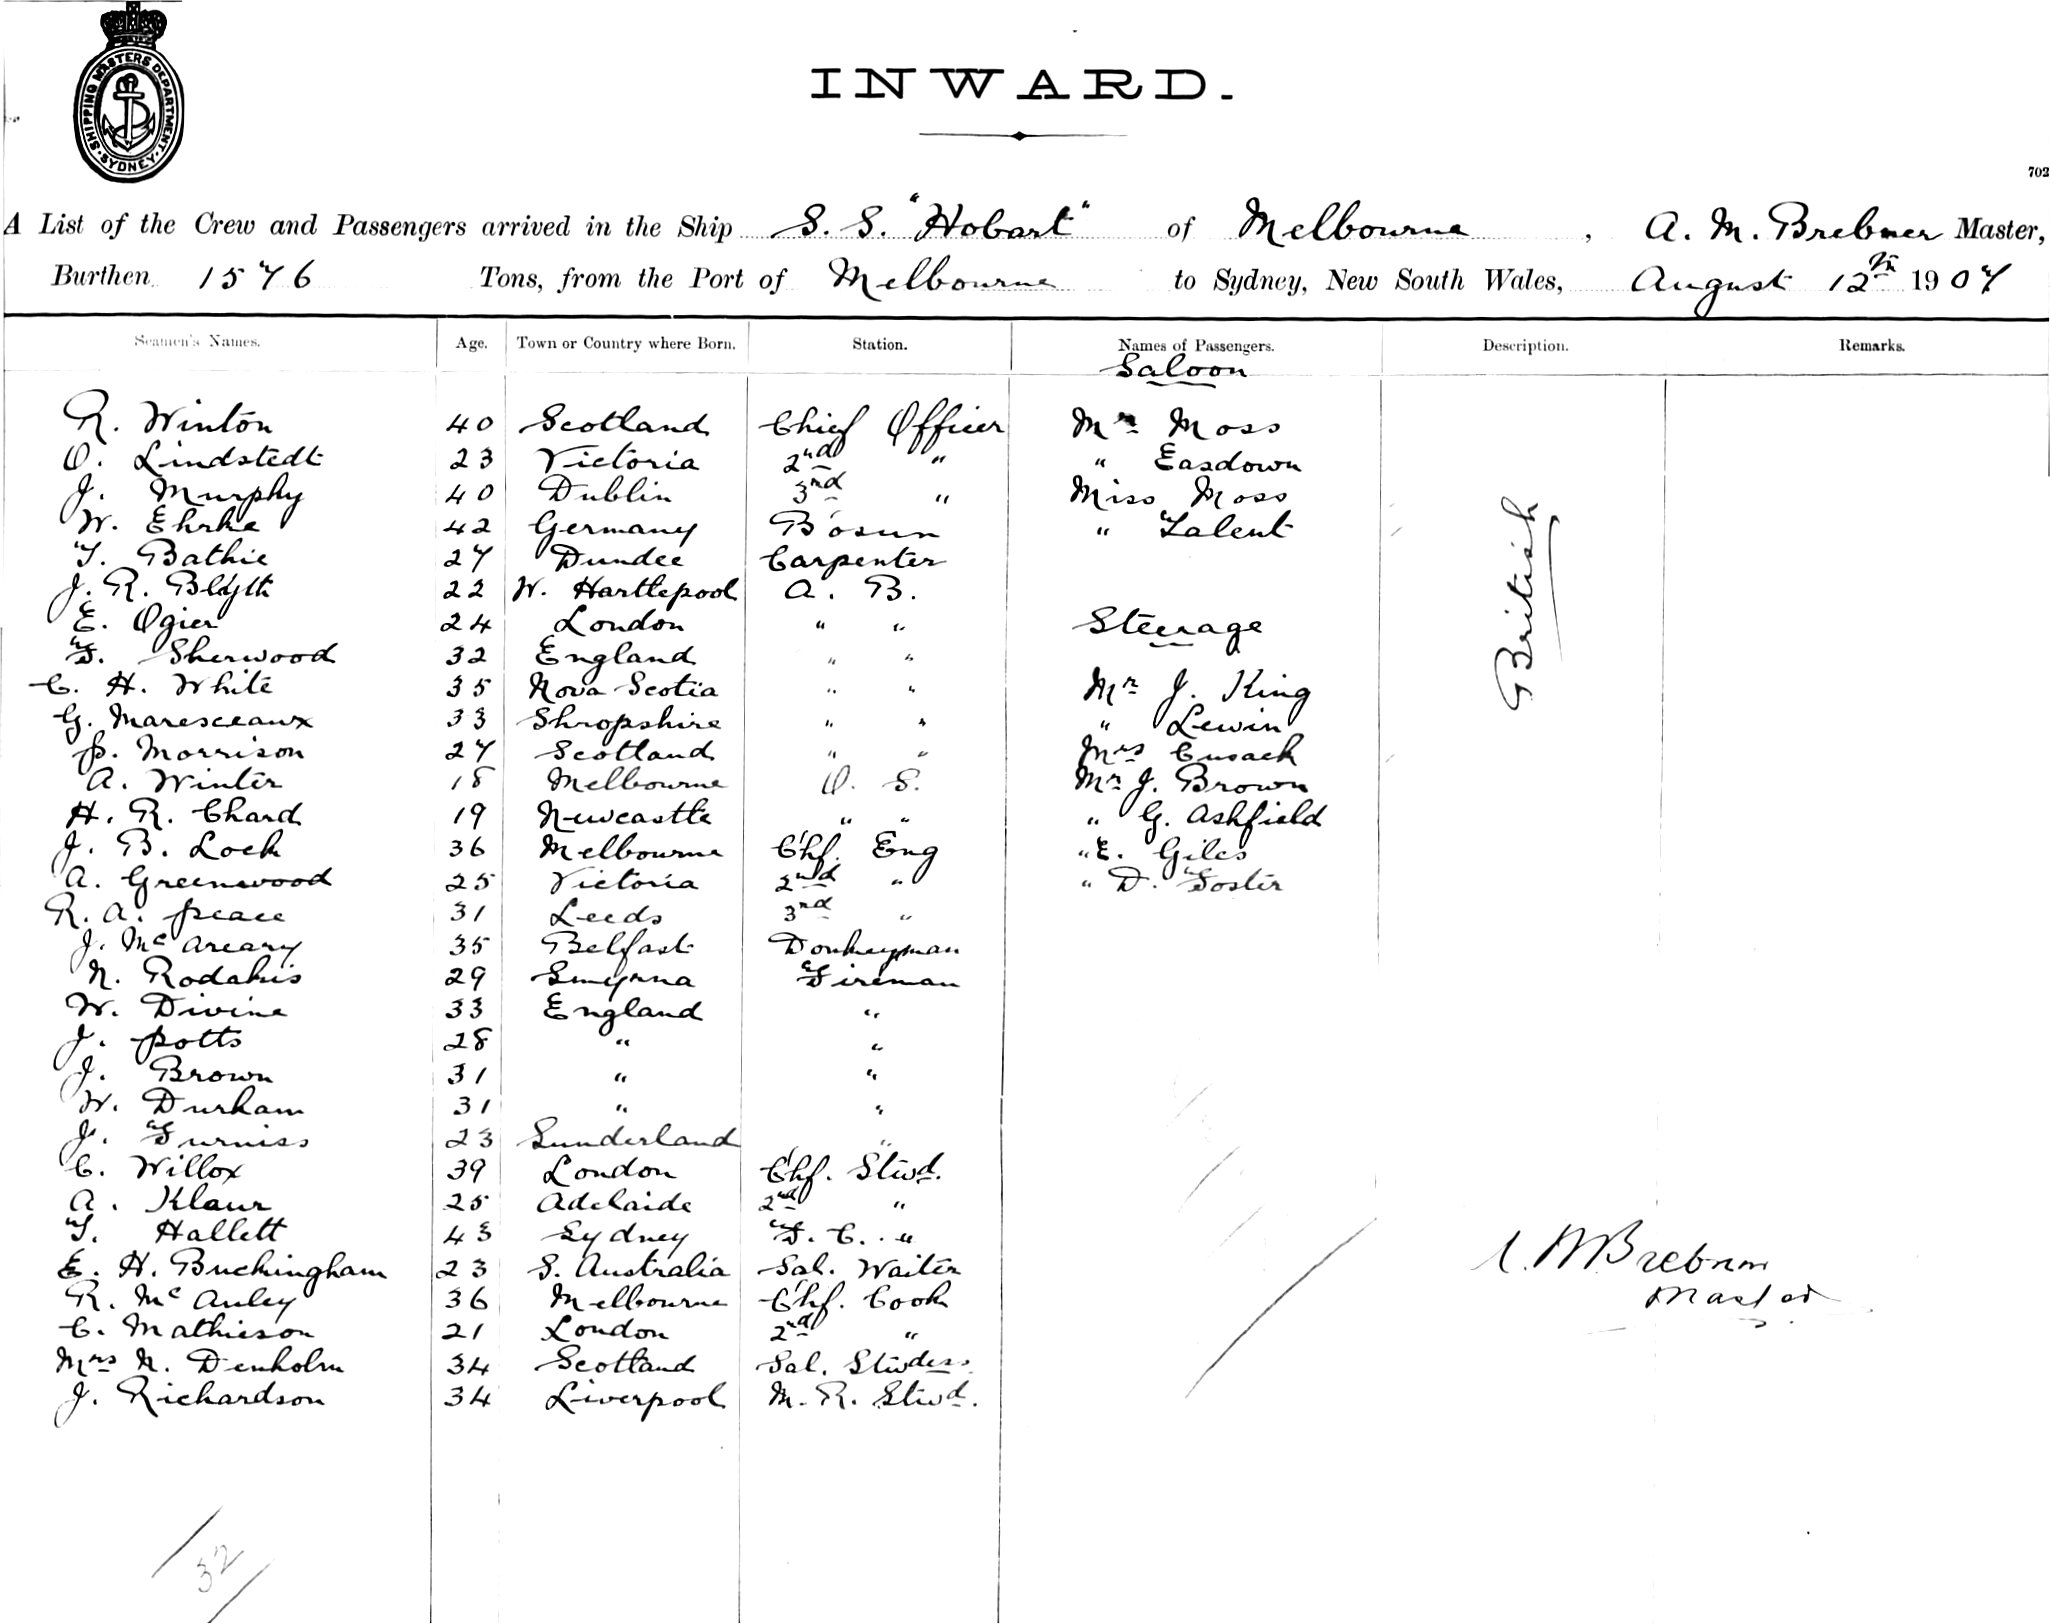 SHIPPING MASTERS DEPARTMENT. SYDNEY.
INWARD.
702
A List of the Crew and Passengers arrived in the Ship S. S. "Hobart" of Melbourne, A. M. Brebner Master,
Burthen 1576 Tons, from the Port of Melbourne to Sydney, New South Wales, August 12th 1907
Seamen's Names. Age. Town or Country where Born. Station. Names of Passengers. Description. Remarks.
Saloon
R. Winton 40 Scotland Chief Officer Mr Moss
O. Lindstedt 23 Victoria 2nd " " Easdown
J. Murphy 40 Dublin 3rd " Miss Moss
W. Ehrke 42 Germany Bosun " Talent
T. Bathie 27 Dundee Carpenter
J. R. Blyth 22 W. Hartlepool A. B.
E. Ogier 24 London " " Steerage
F. Sherwood 32 England " "
C. H. White 35 Nova Scotia " " Mr J. King
G. Maresceaux 33 Shropshire " " " Lewin
P. Morrison 27 Scotland " " Mrs Cusack
A. Winter 18 Melbourne O. S. Mr J. Brown
H. R. Chard 19 Newcastle " " " G. Ashfield
J. B. Lock 36 Melbourne Chf. Eng " E. Giles
A. Greenwood 25 Victoria 2nd " " D. Foster
R. A. Peace 31 Leeds 3rd "
J. McAreavy 35 Belfast Donkeyman
N. Rodakis 29 Smyrna Fireman
W. Divine 33 England "
J. Potts 28 " "
J. Brown 31 " "
W. Durham 31 " "
J. Furniss 23 Sunderland "
C. Willox 39 London Chf. Stwd.
A. Klaur 25 Adelaide 2nd "
T. Hallett 43 Sydney F. C. "
E. H. Buckingham 23 S. Australia Sal. Waiter
R. McAuley 36 Melbourne Chf. Cook
C. Mathieson 21 London 2nd "
Mrs N. Denholm 34 Scotland Sal. Stwdess
J. Richardson 34 Liverpool M. R. Stwd.
British
A. M Brebner
Master
32